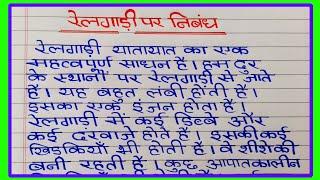 रेलगाड़ी पर निबंध
रेलगाड़ी यातायात का एक
महत्वपूर्ण साधन है। हम दूर
के स्थानों पर रेलगाड़ी से जाते
हैं। यह बहुत लंबी होती है।
इसका एक इंजन होता है।
रेलगाड़ी में कई डिब्बे और
कई दरवाजे होते हैं। इसकी कई
खिड़कियाँ भी होती हैं। वे शीशे की
बनी रहती हैं। कुछ आपातकालीन